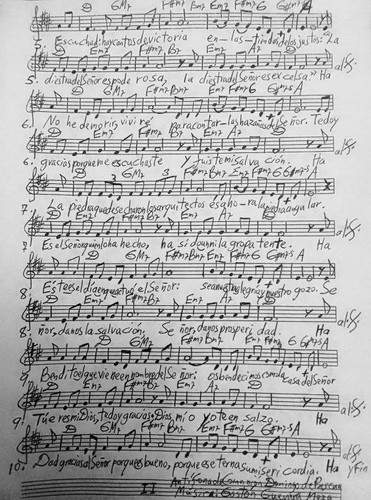 D 6M7 F#m7 Bm7 Em7 F#m7 6
5. Escuchad: hay cantos de victoria en - las - tiendas de los justos: "La
D Em7 F#m7 B7 Em7 A7 D al 𝄋.
5. diestra del Señor es poderosa, la diestra del Señor es excelsa." Ha
D 6M7 F#m7 Bm7 Em7 F#m7 6 6#m7-5 A
6. No he de morir, viviré para contar - las hazañas del Señor. Te doy
D Em7 F#m7 B7 Em7 A7 D al 𝄋.
6. gracias porque me escuchaste y fuiste mi salvación. Ha
D 6M7 F#m7 Bm7 Em7 F#m7 6 6#m7-5 A
7. La piedra que desecharon los arquitectos es ahora la piedra angular.
D Em7 F#m7 B7 Em7 A7 D al 𝄋.
7. Es el Señor quien lo ha hecho, ha sido un milagro patente. Ha
D 6M7 F#m7 Bm7 Em7 F#m7 6 6#m7-5 A
8. Este es el día en que actuó el Señor: sea nuestra alegría y nuestro gozo. Se
D Em7 F#m7 B7 Em7 A7 D al 𝄋.
8. ñor, danos la salvación, Señor, danos prosperidad. Ha
D 6M7 F#m7 Bm7 Em7 F#m7 6 6#m7-5 A
9. Bendito el que viene en nombre del Señor: os bendecimos desde la casa del Señor
D Em7 F#m7 B7 Em7 A7 D al 𝄋.
9. Tú eres mi Dios, te doy gracias; Dios mío yo te ensalzo. Ha
D 6M7 F#m7 B7 Em7 A7 D al 𝄋.
10. Dad gracias al Señor porque es bueno, porque es eterna su misericordia. Ha y Fin
II
Domingo de Pascua
Música: